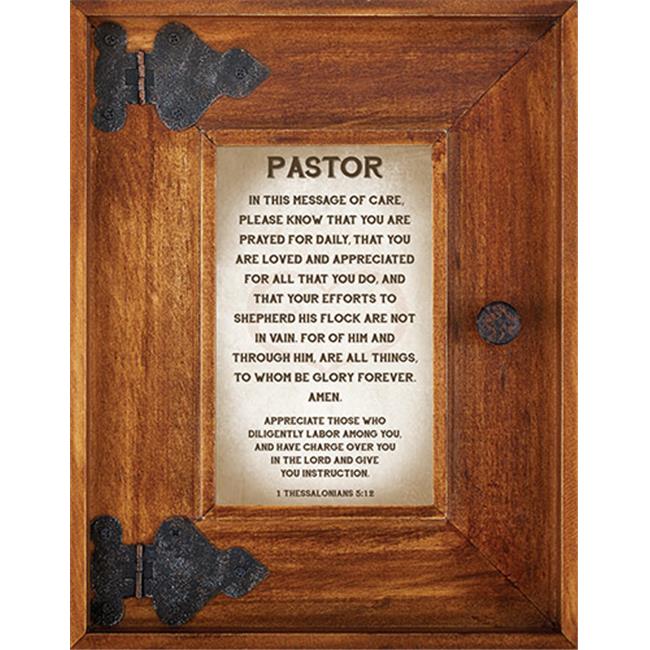 PASTOR
IN THIS MESSAGE OF CARE,
PLEASE KNOW THAT YOU ARE
PRAYED FOR DAILY, THAT YOU
ARE LOVED AND APPRECIATED
FOR ALL THAT YOU DO, AND
THAT YOUR EFFORTS TO
SHEPHERD HIS FLOCK ARE NOT
IN VAIN. FOR OF HIM AND
THROUGH HIM, ARE ALL THINGS,
TO WHOM BE GLORY FOREVER.
AMEN.
APPRECIATE THOSE WHO
DILIGENTLY LABOR AMONG YOU,
AND HAVE CHARGE OVER YOU
IN THE LORD AND GIVE
YOU INSTRUCTION.
1 THESSALONIANS 5:12